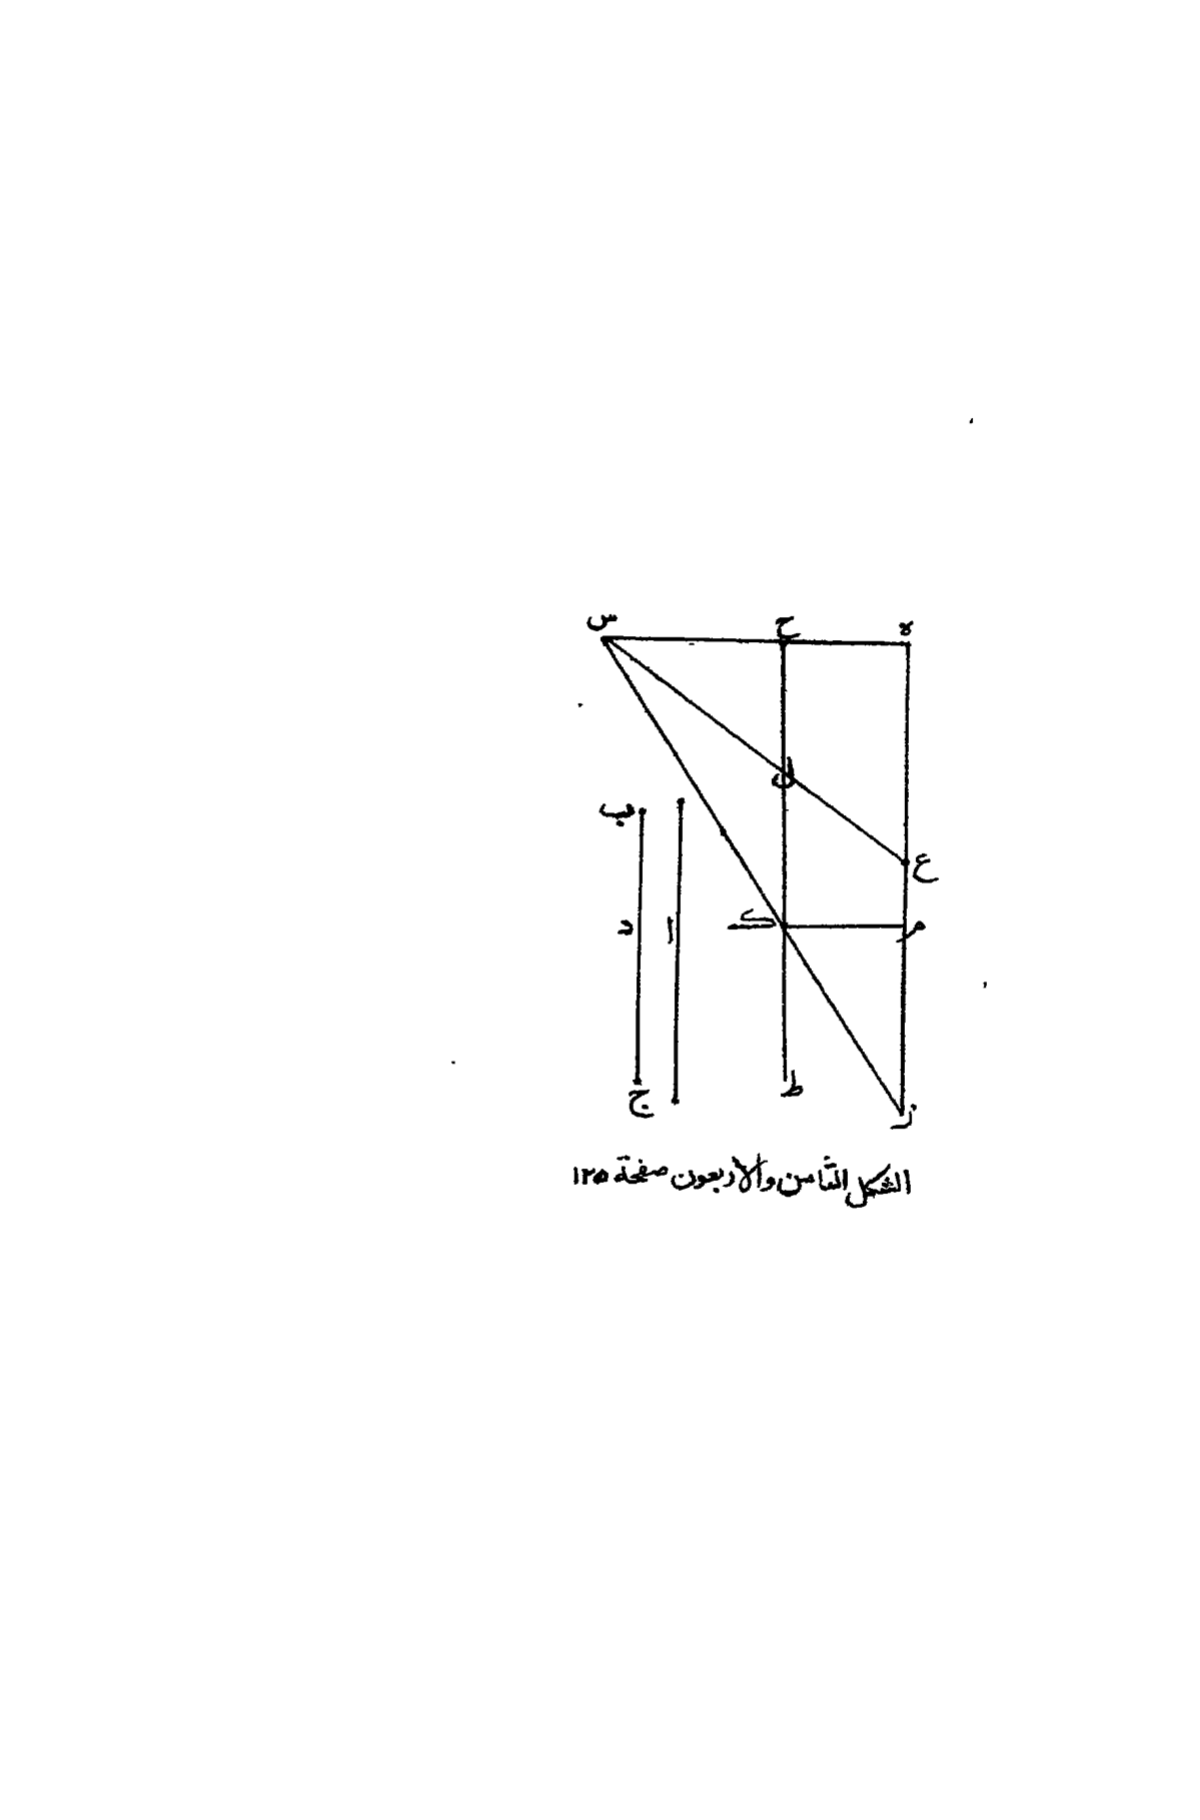 س ح ه
ل
ب
ع
د ا ك م
ج ط ز
الشكل الثامن والأربعون صفحة ١٢٥